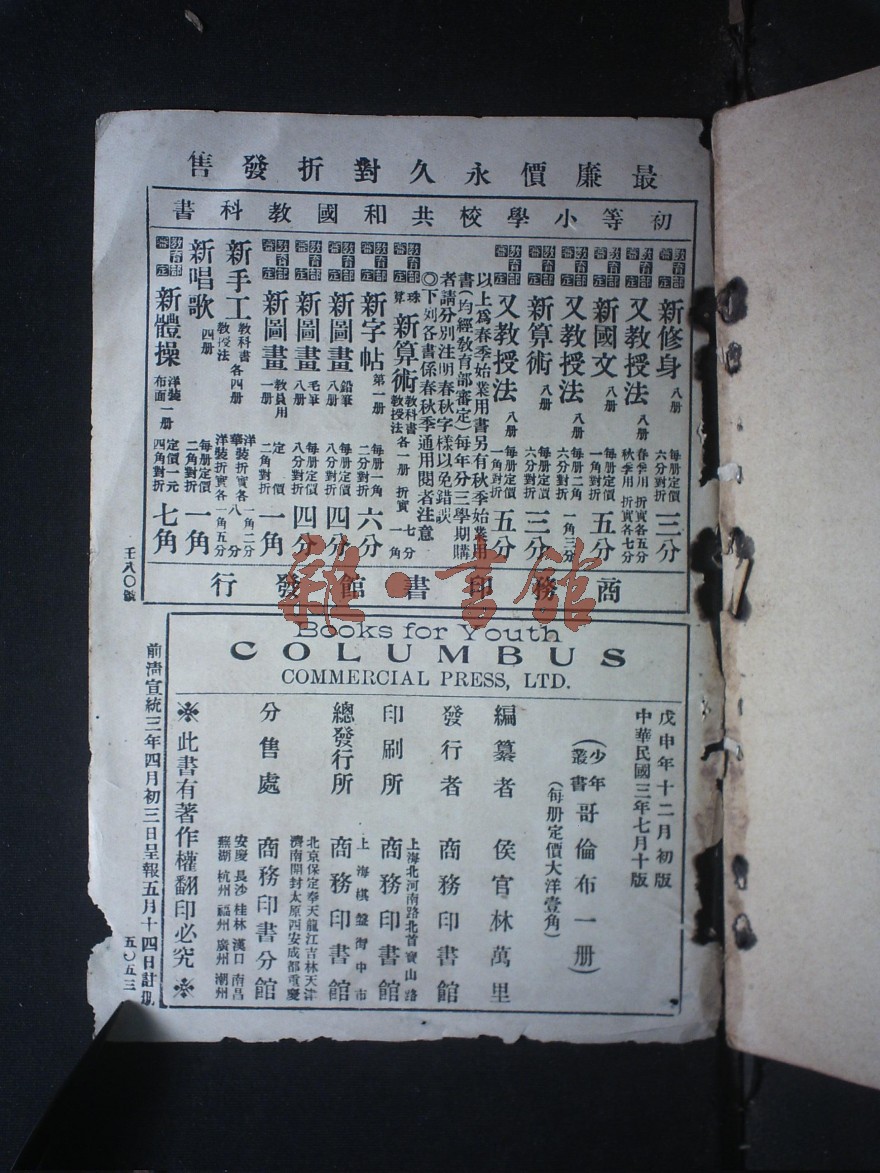 最廉價永久對折發售
初等小學校共和國教科書
教育部審定 新修身 八册 每册定價六分對折 三分
教育部審定 又教授法 八册 春季用 折實各五分 秋季用 折實各七分
教育部審定 新國文 八册 每册定價一角對折 五分
教育部審定 又教授法 八册 每册二角六分對折 一角三分
教育部審定 新算術 八册 每册定價六分對折 三分
教育部審定 又教授法 八册 每册定價一角對折 五分
以上爲春季始業用書另有秋季始業用
書(均經敎育部審定)每年分三學期購
者請分別注明春秋字樣以免錯誤
◎下列各書係春秋季通用閱者注意
教育部審定 珠算 新算術 教科書教授法各一册 折實 七分 一角
教育部審定 新字帖 第一册 每册一角二分對折 六分
教育部審定 新圖畫 鉛筆八册 每册定價八分對折 四分
教育部審定 新圖畫 毛筆八册 每册定價八分對折 四分
教育部審定 新圖畫 教員用一册 定價二角對折 一角
新手工 教科書教授法 各四册 洋裝折實各一角二分 華裝折實各八分 洋裝折實各一角五分
新唱歌 四册 每册定價二角對折 一角
教育部審定 新體操 洋裝布面一册 定價一元四角對折 七角
商務印書館發行
壬八〇號
雜·書館
Books for Youth
COLUMBUS
COMMERCIAL PRESS, LTD.
戊申年十二月初版
中華民國三年七月十版
(少年叢書 哥倫布一册)
(每册定價大洋壹角)
編纂者 侯官林萬里
發行者 商務印書館
印刷所 上海北河南路北首寶山路 商務印書館
總發行所 上海棋盤街中市 商務印書館
分售處 北京保定奉天龍江吉林天津
濟南開封太原西安成都重慶
商務印書分館
安慶 長沙 桂林 漢口 南昌
蕪湖 杭州 福州 廣州 潮州
※此書有著作權翻印必究※
前清宣統三年四月初三日呈報五月十四日註册
五〇五三